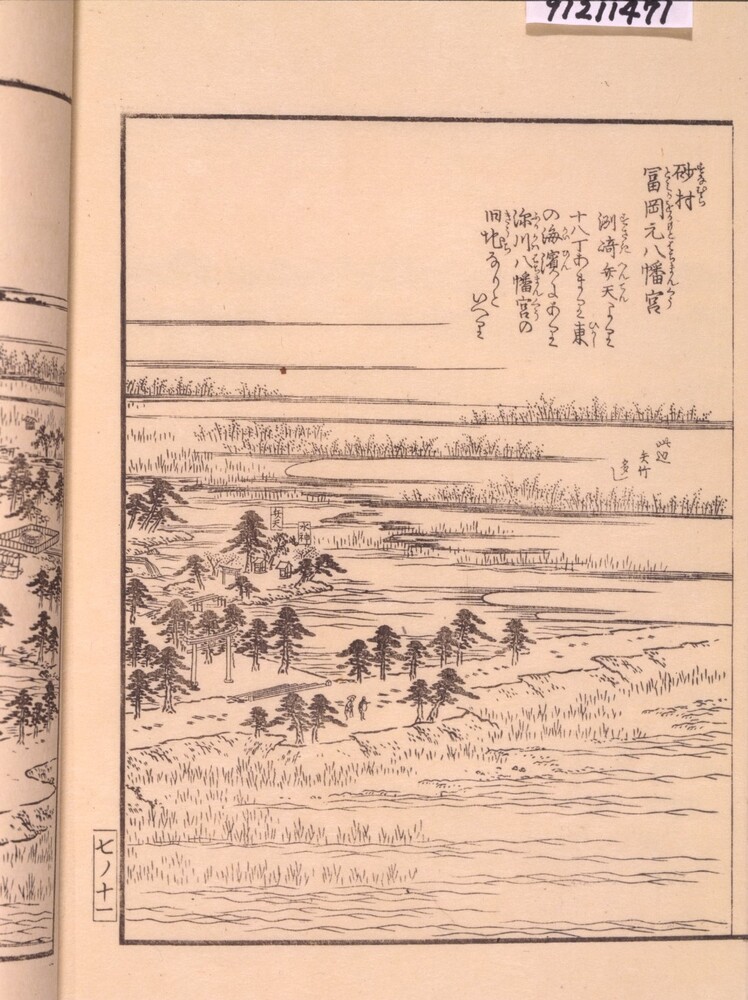 91211471
砂村
富岡元八幡宮
洲崎弁天より
十八丁あまり東
の海濱にあり
深川八幡宮の
旧地なりと
いへり
此辺
矢竹
多し
弁天
七ノ十一